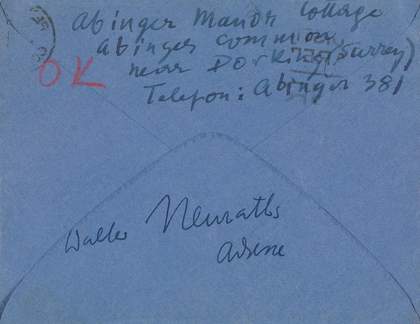 Abinger Manor Cottage
Abinger Common
near Dorking (Surrey)
Telefon: Abinger 381
OK
Walter Neuraths
Adresse